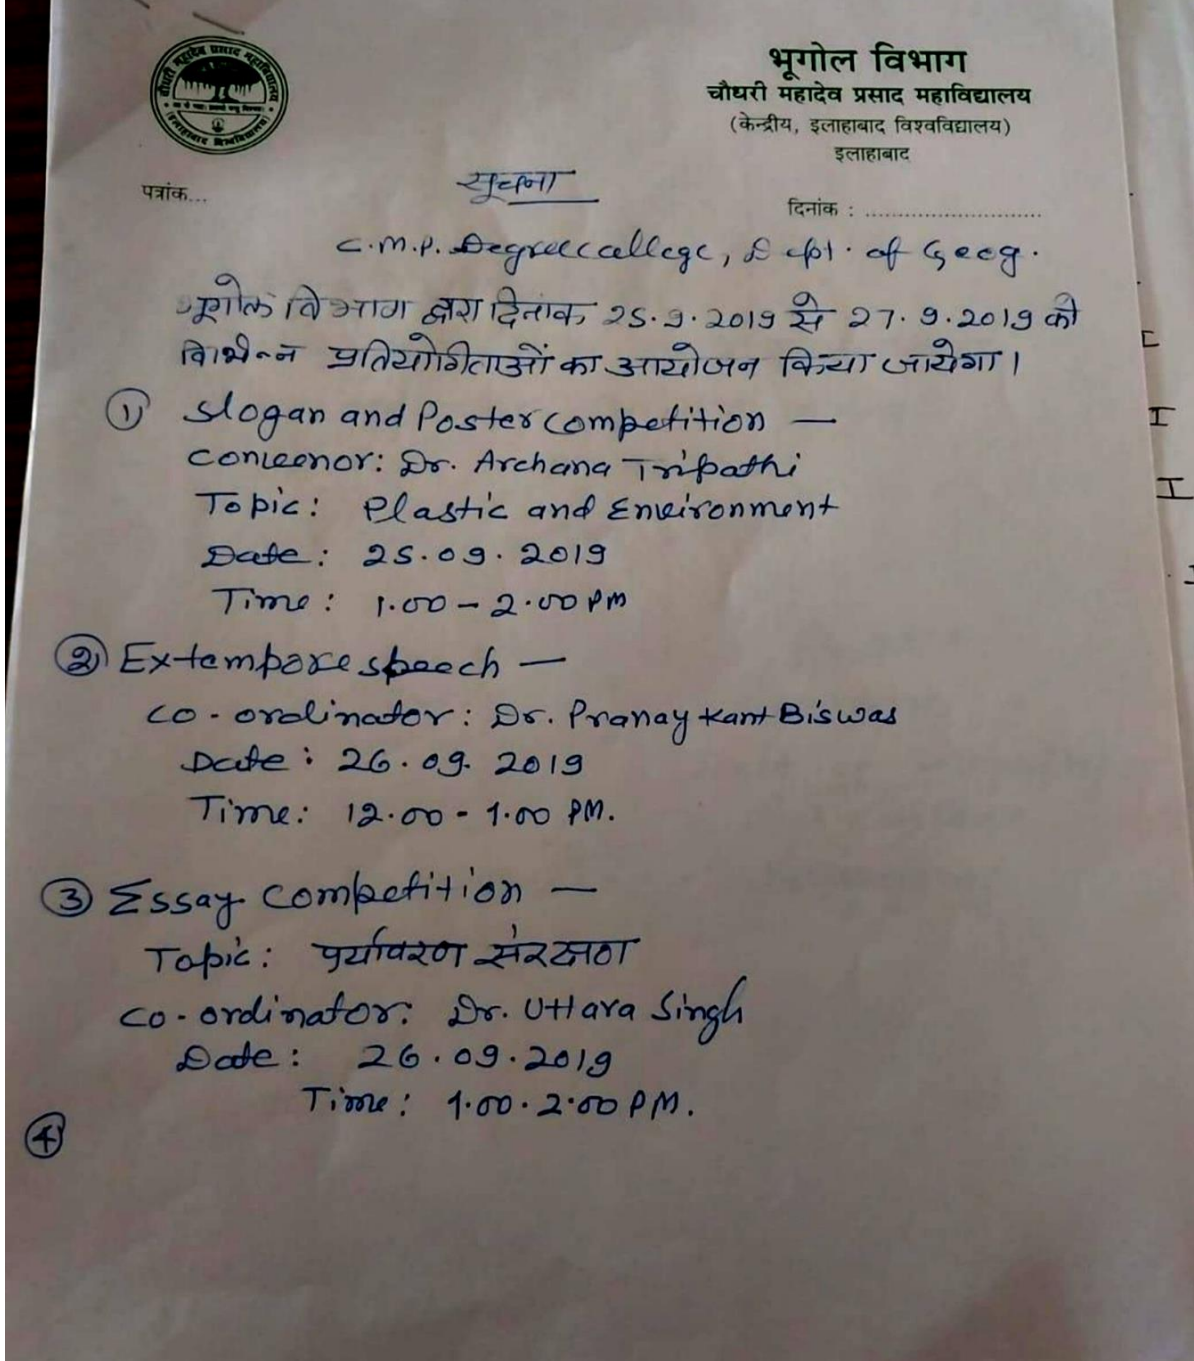 चौधरी महादेव प्रसाद महाविद्यालय
(इलाहाबाद विश्वविद्यालय)
भूगोल विभाग
चौधरी महादेव प्रसाद महाविद्यालय
(केन्द्रीय, इलाहाबाद विश्वविद्यालय)
इलाहाबाद
पत्रांक...
सूचना
दिनांक : ............................
C.M.P. Degree College, Dept. of Geog.
भूगोल विभाग द्वारा दिनांक 25.9.2019 से 27.9.2019 को
विभिन्न प्रतियोगिताओं का आयोजन किया जायेगा।
① Slogan and Poster Competition —
Conveenor: Dr. Archana Tripathi
Topic: Plastic and Environment
Date: 25.09.2019
Time: 1.00 – 2.00 PM
② Extempore speech —
Co-ordinator: Dr. Pranay Kant Biswas
Date: 26.09.2019
Time: 12.00 - 1.00 PM.
③ Essay Competition —
Topic: पर्यावरण संरक्षण
Co-ordinator: Dr. Uttara Singh
Date: 26.09.2019
Time: 1.00.2.00 PM.
④
I
I
I